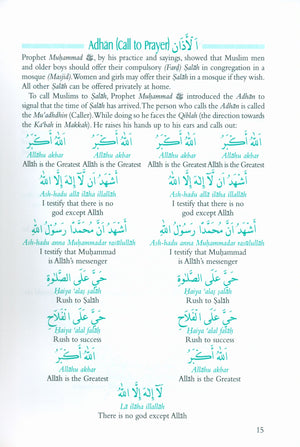 Adhān (Call to Prayer) اَلْأَذَان
Prophet Muḥammad ﷺ, by his practice and sayings, showed that Muslim men
and older boys should offer their compulsory (Farḍ) Ṣalāh in congregation in a
mosque (Masjid). Women and girls may offer their Ṣalāh in a mosque if they wish.
All other Ṣalāh can be offered privately at home.
To call Muslims to Ṣalāh, Prophet Muḥammad ﷺ introduced the Adhān to
signal that the time of Ṣalāh has arrived. The person who calls the Adhān is called
the Mu'adhdhin (Caller). While doing so he faces the Qiblah (the direction towards
the Ka'bah in Makkah). He raises his hands up to his ears and calls out:
اَللّٰهُ أَكْبَرُ اَللّٰهُ أَكْبَرُ اَللّٰهُ أَكْبَرُ اَللّٰهُ أَكْبَرُ
Allāhu akbar Allāhu akbar Allāhu akbar Allāhu akbar
Allāh is the Greatest Allāh is the Greatest Allāh is the Greatest Allāh is the Greatest
أَشْهَدُ اَنْ لَآ إِلٰهَ إِلَّا اللّٰهُ أَشْهَدُ اَنْ لَآ إِلٰهَ إِلَّا اللّٰهُ
Ash-hadu allā ilāha illallāh Ash-hadu allā ilāha illallāh
I testify that there is no I testify that there is no
god except Allāh god except Allāh
أَشْهَدُ اَنَّ مُحَمَّدًا رَسُوْلُ اللّٰهِ أَشْهَدُ اَنَّ مُحَمَّدًا رَسُوْلُ اللّٰهِ
Ash-hadu anna Muḥammadar rasūlullāh Ash-hadu anna Muḥammadar rasūlullāh
I testify that Muḥammad I testify that Muḥammad
is Allāh's messenger is Allāh's messenger
حَيَّ عَلَى الصَّلٰوةِ حَيَّ عَلَى الصَّلٰوةِ
Ḥaiya 'alaṣ ṣalāh Ḥaiya 'alaṣ ṣalāh
Rush to Ṣalāh Rush to Ṣalāh
حَيَّ عَلَى الْفَلَاحِ حَيَّ عَلَى الْفَلَاحِ
Ḥaiya 'alal falāḥ Ḥaiya 'alal falāḥ
Rush to success Rush to success
اَللّٰهُ أَكْبَرُ اَللّٰهُ أَكْبَرُ
Allāhu akbar Allāhu akbar
Allāh is the Greatest Allāh is the Greatest
لَآ إِلٰهَ إِلَّا اللّٰهُ
Lā ilāha illallāh
There is no god except Allāh
15